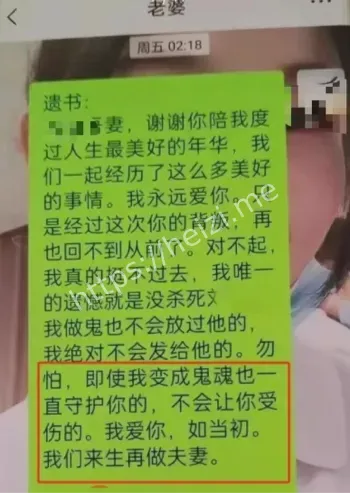 老婆
周五 02:18
遗书:
妻，谢谢你陪我度
过人生最美好的年华，我
们一起经历了这么多美好
的事情。我永远爱你。只
是经过这次你的背叛，再
也回不到从前了。对不起，
我真的挺不过去，我唯一
的遗憾就是没杀死文
我做鬼也不会放过他的，
我绝对不会发给他的。勿
怕，即使我变成鬼魂也一
直守护你的，不会让你受
伤的。我爱你，如当初。
我们来生再做夫妻。
https://heizi.me